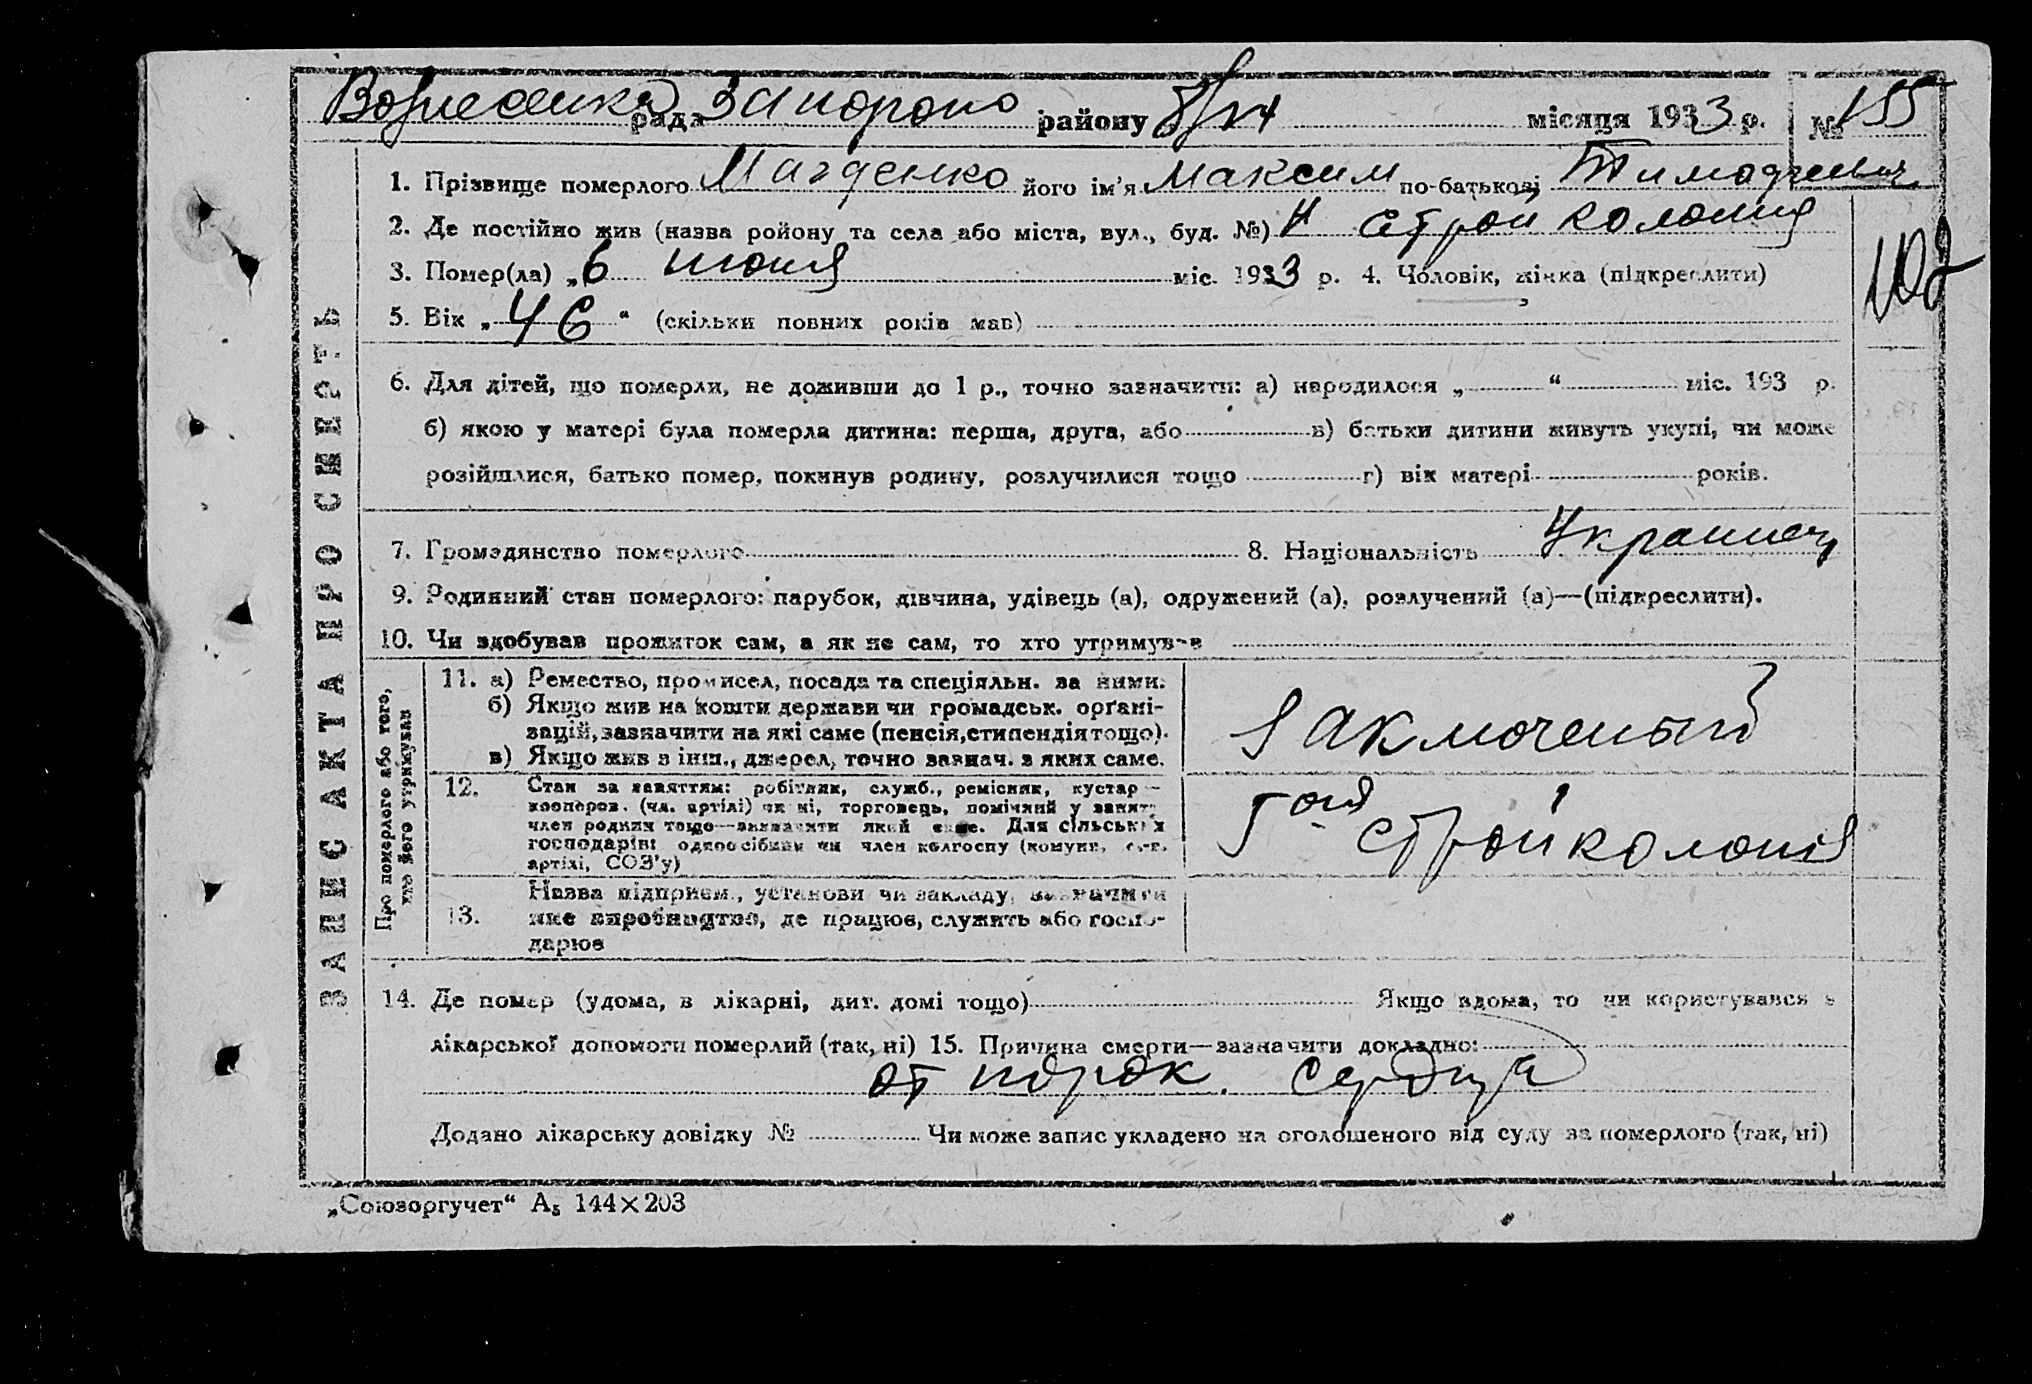 Вознесенка рада Запорожс району 8/VI місяця 1933 р. № 155
ЗАПИС АКТА ПРО СМЕРТЬ
1. Прізвище померлого Магденко його ім'я Максим по-батькові Тимофеевич
2. Де постійно жив (назва ройону та села або міста, вул., буд. №) Стройколония
3. Помер(ла) „6 июня міс. 1933 р. 4. Чоловік, жінка (підкреслити)
102
5. Вік „46“ (скільки повних років мав)
6. Для дітей, що померли, не доживши до 1 р., точно зазначити: а) народилося „ “ міс. 193 р.
б) якою у матері була померла дитина: перша, друга, або в) батьки дитини живуть укупі, чи може
розійшлися, батько помер, покинув родину, розлучилися тощо г) вік матері років.
7. Громадянство померлого 8. Національність Украинец
9. Родинний стан померлого: парубок, дівчина, удівець (а), одружений (а), розлучений (а)—(підкреслити).
10. Чи здобував прожиток сам, а як не сам, то хто утримував
Про померлого або того, хто його утримував
11. а) Ремество, промисел, посада та спеціяльн. за ними.
б) Якщо жив на кошти держави чи громадськ. органі-
зацій, зазначити на які саме (пенсія, стипендія тощо).
в) Якщо жив з інш., джерел, точно зазнач. з яких саме.
заключеный
12. Стан за заняттям: робітник, служб., ремісник, кустар—
кооперов. (чл. артілі) чи ні, торговець, помічний у занятт
член родини тощо—зазначити який саме. Для сільських
господарів: одноосібник чи член колгоспу (комуни, с.-г.
артілі, СОЗ'у)
5ая стройколония
13. Назва підприєм., установи чи закладу, зазначити
яке виробництво, де працює, служить або госпо-
дарює
14. Де помер (удома, в лікарні, дит. домі тощо) Якщо вдома, то чи користувався з
лікарської допомоги померлий (так, ні) 15. Причина смерти—зазначити докладно:
от порок. сердца
Додано лікарську довідку № Чи може запис укладено на оголошеного від суду за померлого (так, ні)
„Союзоргучет“ А5 144×203